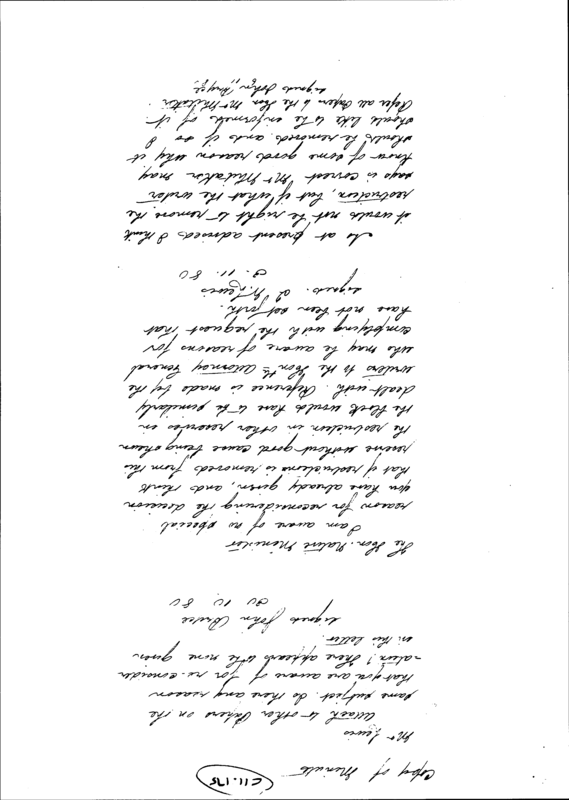 Copy of Minute
C11.175
Mr Lewis
Attach to other Papers on the
same subject. Is there any reason
that you are aware of for re-consider
-ation? There appears to be none given
in this letter.
signed John Bryce
30. 10. 80
The Hon. Native Minister
I am aware of no special
reason for reconsidering the decision
you have already given, and think
that if restrictions is removed from this
reserve without good cause being shewn
the restriction in other reserves in
the Block would have to be similarly
dealt with. Reference is made by the
writers to the Honble Attorney General
who may be aware of reasons for
complying with the request that
have not been set forth.
signed. T. W. Lewis
3. 11. 80
As at present advised I think
it would not be right to remove the
restriction, but if what the writer
says is correct Mr Whitaker may
know of some good reason why it
should be removed and if so I
should like to be informed of it
Refer all Papers to the Hon Mr Whitaker.
signed John Bryce